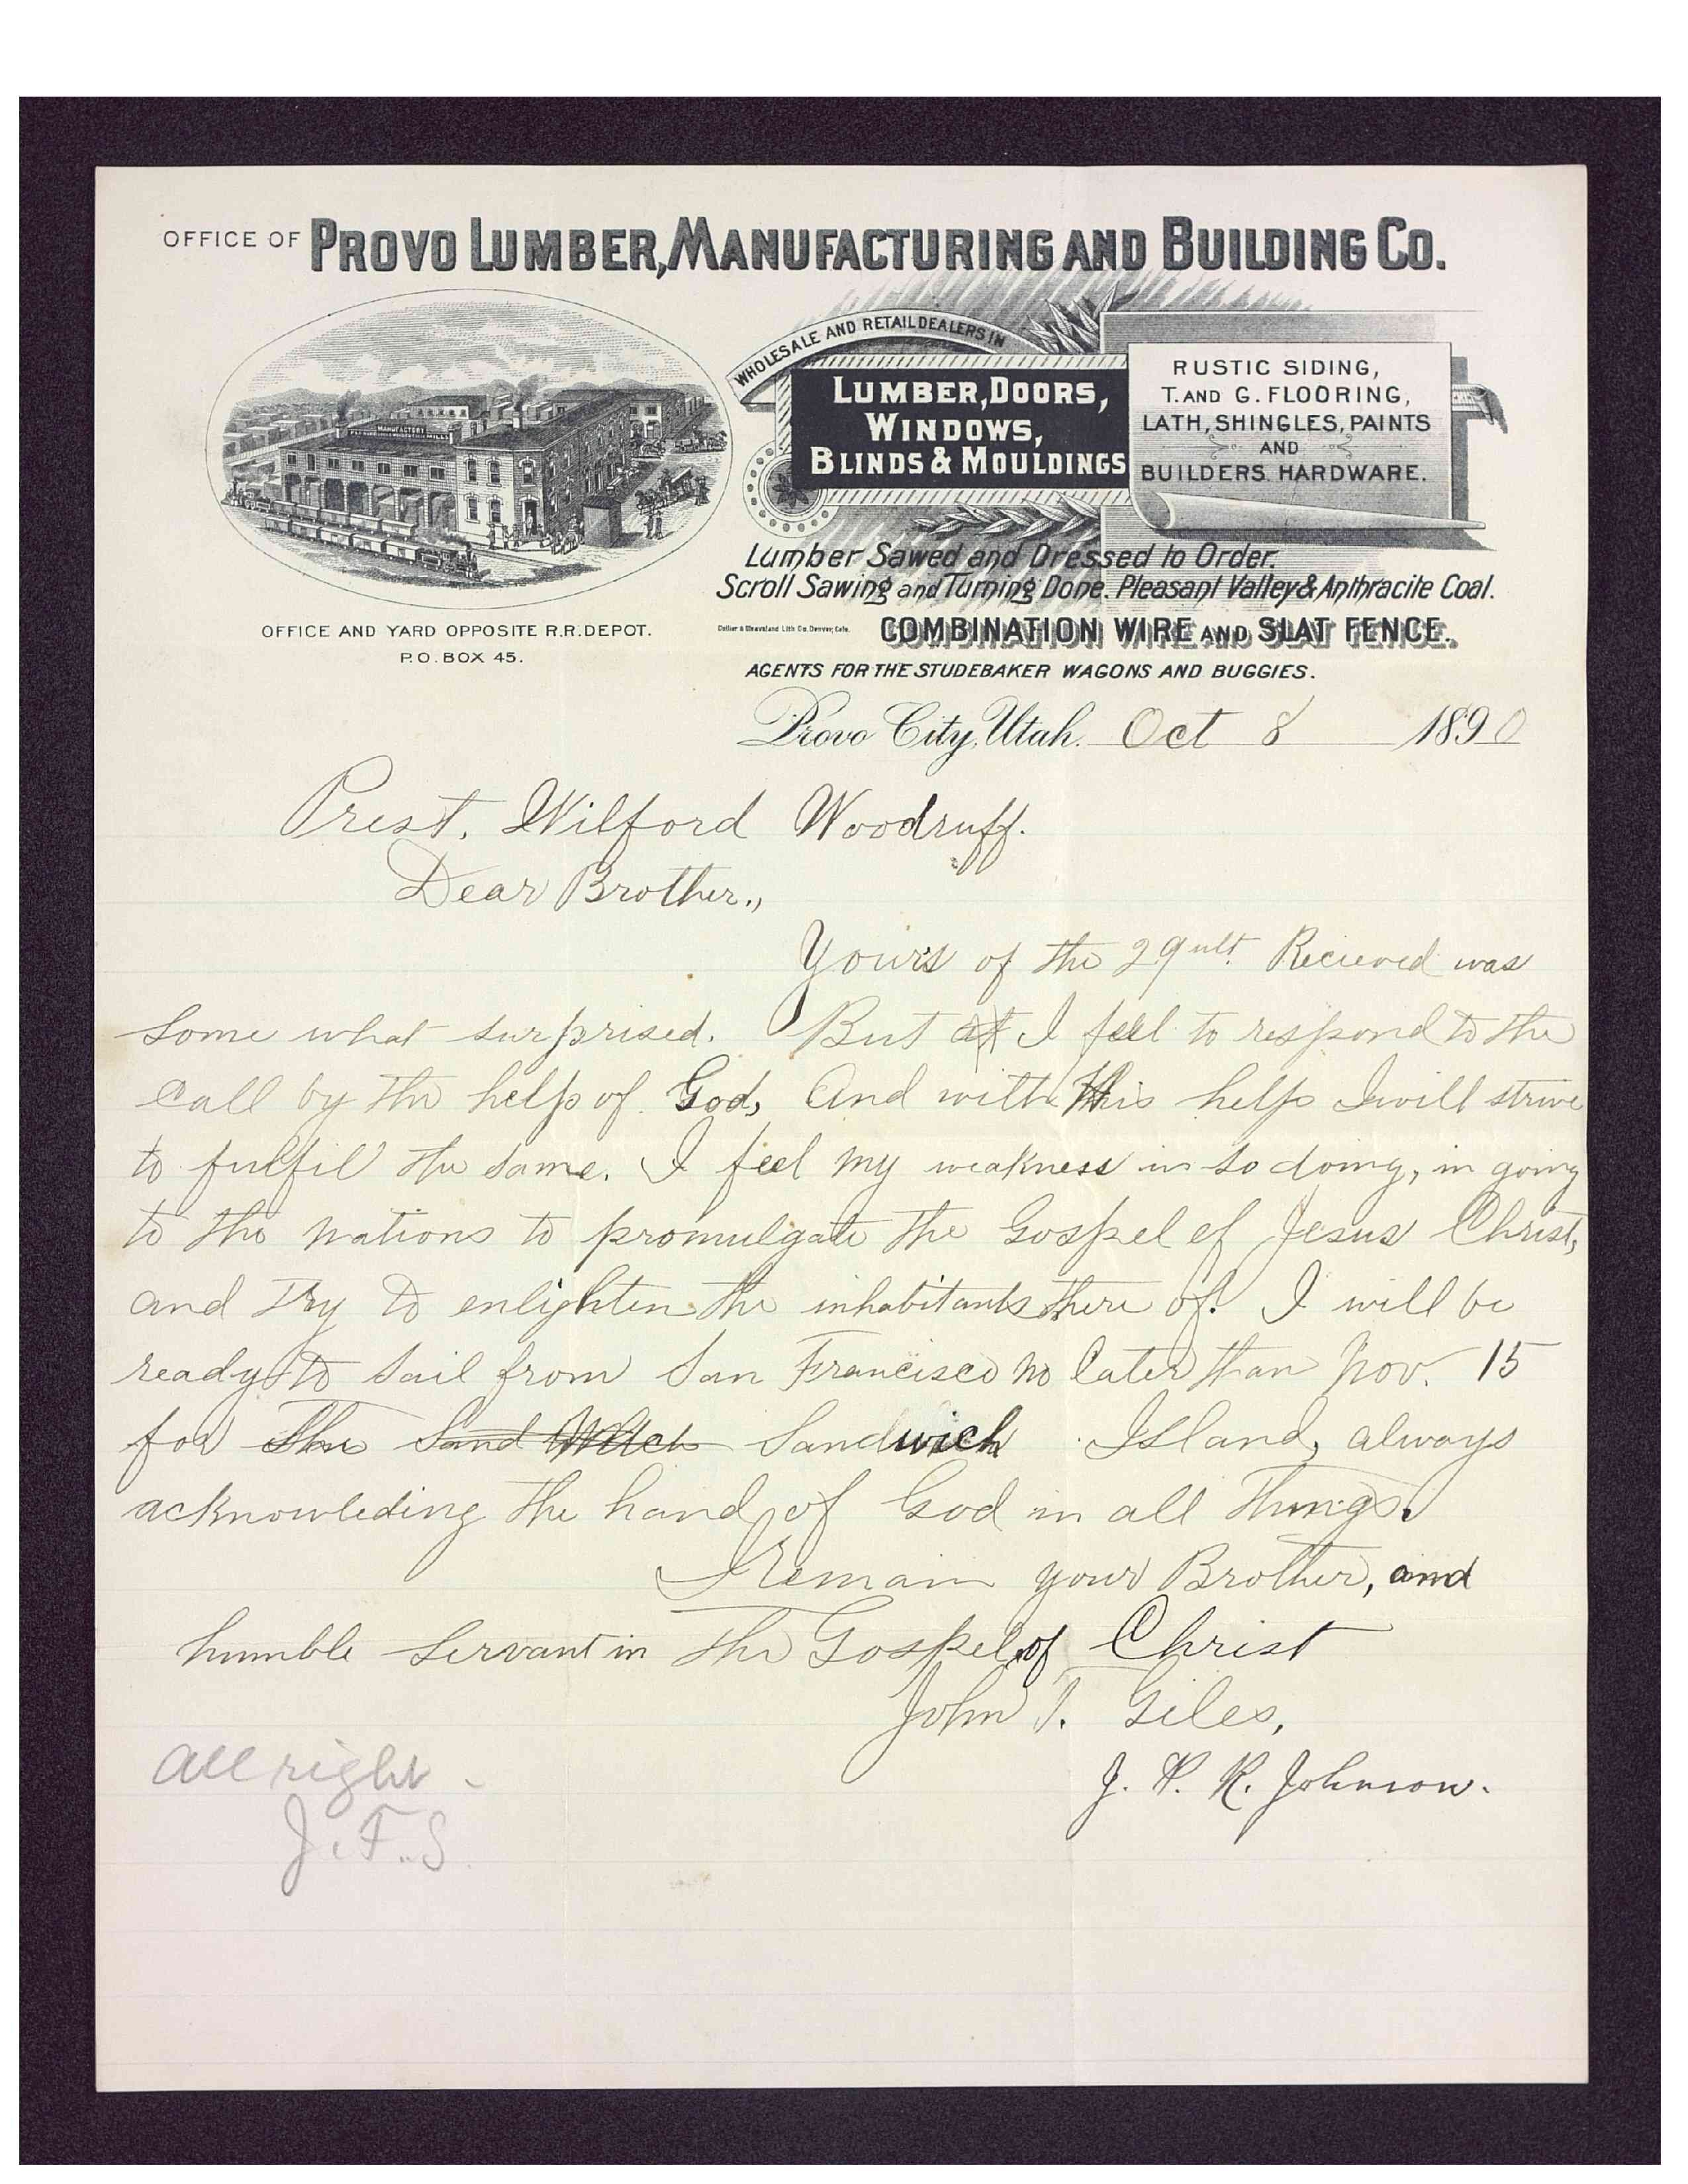 OFFICE OF PROVO LUMBER, MANUFACTURING AND BUILDING CO.
WHOLESALE AND RETAIL DEALERS IN
LUMBER, DOORS,
WINDOWS,
BLINDS & MOULDINGS
RUSTIC SIDING,
T. AND G. FLOORING,
LATH, SHINGLES, PAINTS
AND
BUILDERS HARDWARE.
MANUFACTORY
Lumber Sawed and Dressed to Order.
Scroll Sawing and Turning Done. Pleasant Valley & Anthracite Coal.
OFFICE AND YARD OPPOSITE R.R. DEPOT.
P.O. BOX 45.
COMBINATION WIRE AND SLAT FENCE.
AGENTS FOR THE STUDEBAKER WAGONS AND BUGGIES.
Provo City, Utah. Oct 8 1890
Prest. Wilford Woodruff.
Dear Brother.,
Yours of the 29 ult. Recieved was
some what surprised. But at I feel to respond to the
call by the help of God, And with this help I will strive
to fulfil the same. I feel my weakness in so doing, in going
to the nations to promulgate the Gospel of Jesus Christ,
and try to enlighten the inhabitants there of. I will be
ready to sail from San Francisco no later than Nov. 15
for the Sand Witch Sandwich Island, always
acknowleding the hand of God in all things.
I Remain your Brother, and
humble servant in the Gospel of Christ
John T. Giles,
J. P. R. Johnson.
All right.
J. F. S.